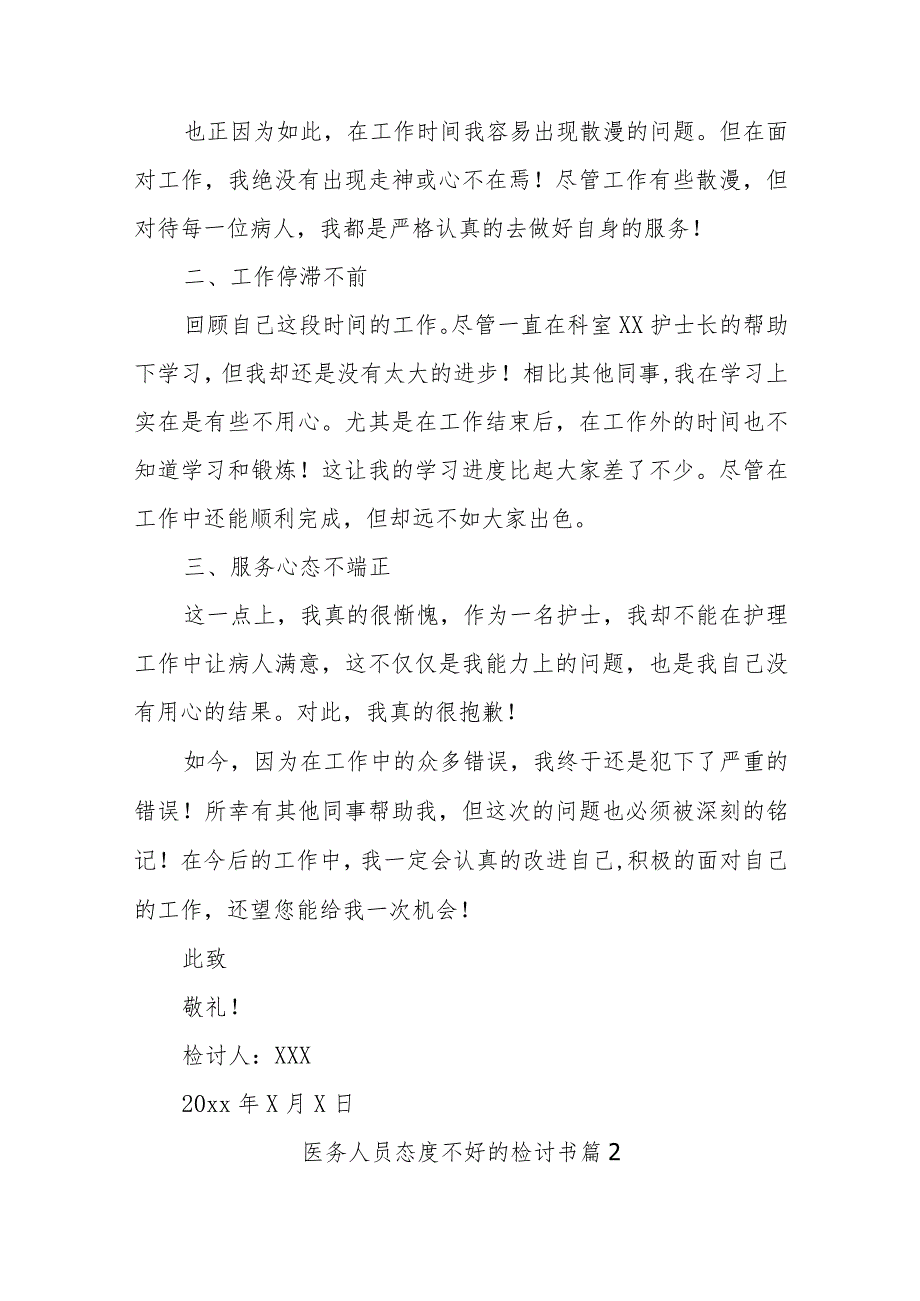 也正因为如此，在工作时间我容易出现散漫的问题。但在面
对工作，我绝没有出现走神或心不在焉！尽管工作有些散漫，但
对待每一位病人，我都是严格认真的去做好自身的服务！
二、工作停滞不前
回顾自己这段时间的工作。尽管一直在科室 XX 护士长的帮助
下学习，但我却还是没有太大的进步！相比其他同事,我在学习上
实在是有些不用心。尤其是在工作结束后，在工作外的时间也不
知道学习和锻炼！这让我的学习进度比起大家差了不少。尽管在
工作中还能顺利完成，但却远不如大家出色。
三、服务心态不端正
这一点上，我真的很惭愧，作为一名护士，我却不能在护理
工作中让病人满意，这不仅仅是我能力上的问题，也是我自己没
有用心的结果。对此，我真的很抱歉！
如今，因为在工作中的众多错误，我终于还是犯下了严重的
错误！所幸有其他同事帮助我，但这次的问题也必须被深刻的铭
记！在今后的工作中，我一定会认真的改进自己,积极的面对自己
的工作，还望您能给我一次机会！
此致
敬礼！
检讨人：XXX
20xx 年 X 月 X 日
医务人员态度不好的检讨书篇 2